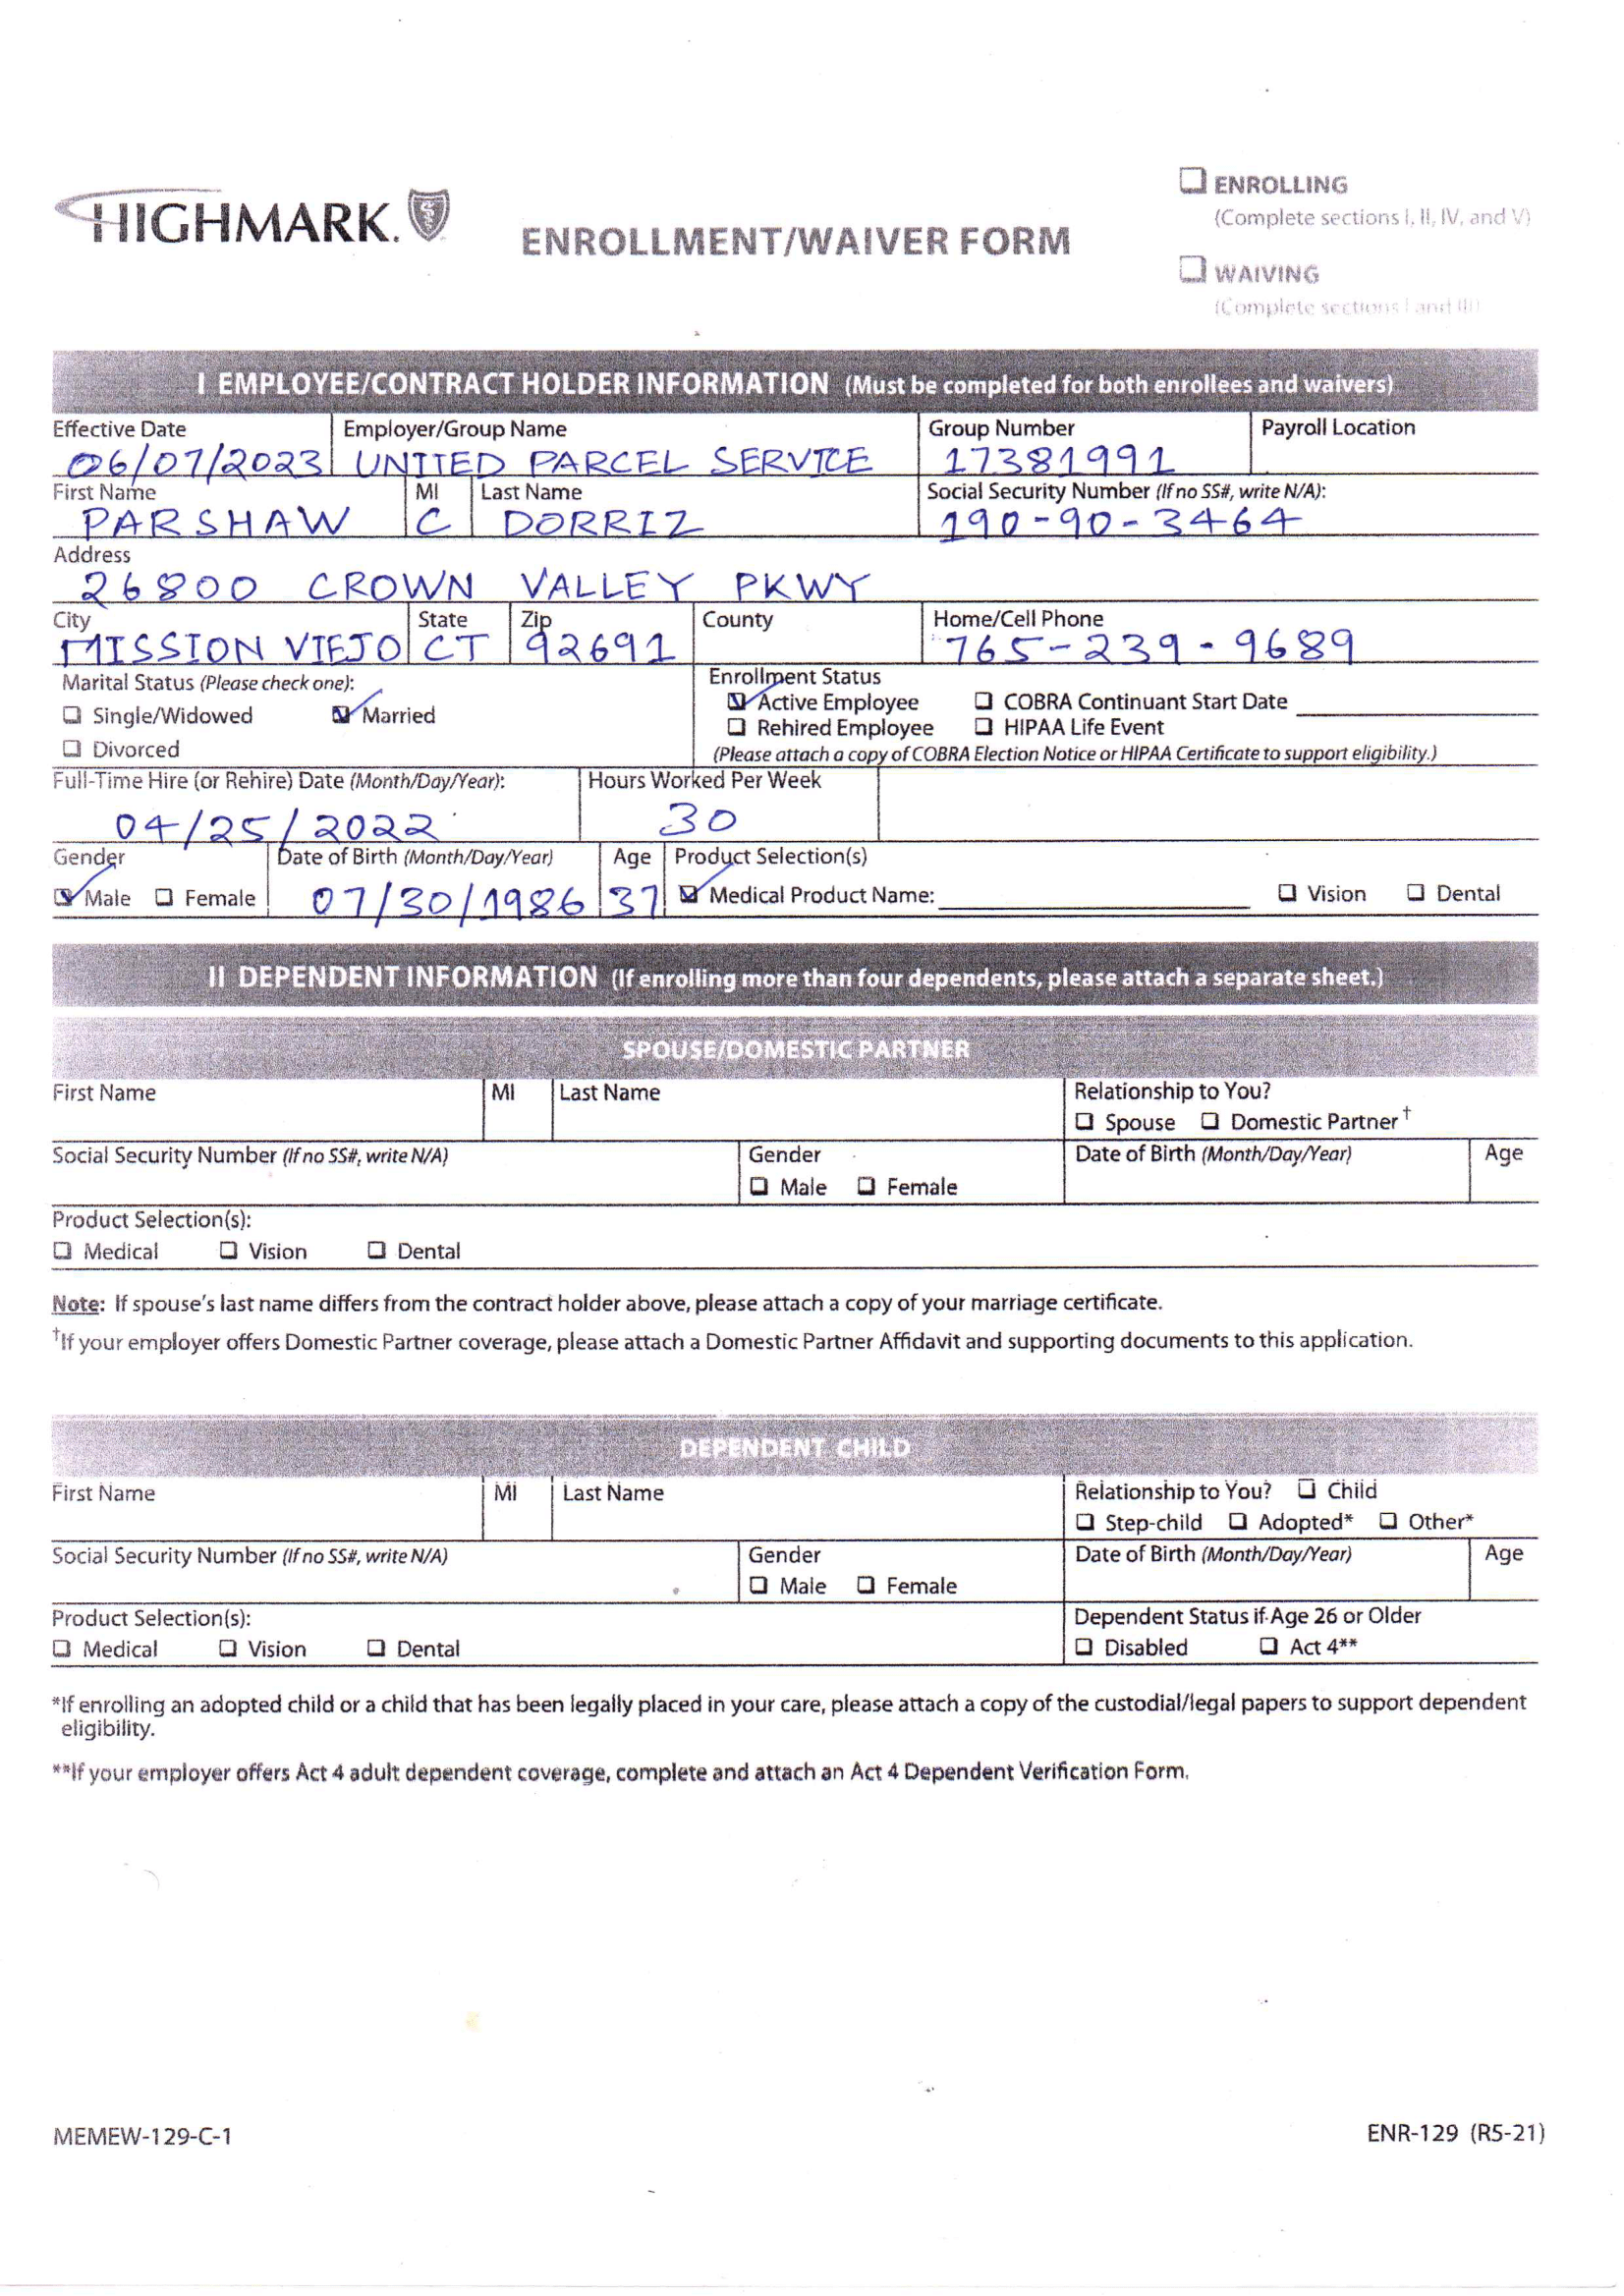 HIGHMARK.
ENROLLMENT/WAIVER FORM
☐ ENROLLING
(Complete sections I, II, IV, and V)
☐ WAIVING
(Complete sections I and III)
I EMPLOYEE/CONTRACT HOLDER INFORMATION (Must be completed for both enrollees and waivers)
Effective Date Employer/Group Name Group Number Payroll Location
06/07/2023 UNITED PARCEL SERVICE 17381991
First Name MI Last Name Social Security Number (If no SS#, write N/A):
PARSHAW C DORRIZ 190-90-3464
Address
26800 CROWN VALLEY PKWY
City State Zip County Home/Cell Phone
MISSION VIEJO CT 92691 765-239-9689
Marital Status (Please check one): Enrollment Status
☑ Active Employee ☐ COBRA Continuant Start Date
☐ Single/Widowed ☑ Married
☐ Rehired Employee ☐ HIPAA Life Event
☐ Divorced (Please attach a copy of COBRA Election Notice or HIPAA Certificate to support eligibility.)
Full-Time Hire (or Rehire) Date (Month/Day/Year): Hours Worked Per Week
04/25/2022 30
Gender Date of Birth (Month/Day/Year) Age Product Selection(s)
☑ Male ☐ Female 07/30/1986 37 ☑ Medical Product Name: ☐ Vision ☐ Dental
II DEPENDENT INFORMATION (If enrolling more than four dependents, please attach a separate sheet.)
SPOUSE/DOMESTIC PARTNER
First Name MI Last Name Relationship to You?
☐ Spouse ☐ Domestic Partner†
Social Security Number (If no SS#, write N/A) Gender Date of Birth (Month/Day/Year) Age
☐ Male ☐ Female
Product Selection(s):
☐ Medical ☐ Vision ☐ Dental
Note: If spouse's last name differs from the contract holder above, please attach a copy of your marriage certificate.
†If your employer offers Domestic Partner coverage, please attach a Domestic Partner Affidavit and supporting documents to this application.
DEPENDENT CHILD
First Name MI Last Name Relationship to You? ☐ Child
☐ Step-child ☐ Adopted* ☐ Other*
Social Security Number (If no SS#, write N/A) Gender Date of Birth (Month/Day/Year) Age
☐ Male ☐ Female
Product Selection(s): Dependent Status if Age 26 or Older
☐ Medical ☐ Vision ☐ Dental ☐ Disabled ☐ Act 4**
*If enrolling an adopted child or a child that has been legally placed in your care, please attach a copy of the custodial/legal papers to support dependent
eligibility.
**If your employer offers Act 4 adult dependent coverage, complete and attach an Act 4 Dependent Verification Form.
MEMEW-129-C-1 ENR-129 (R5-21)